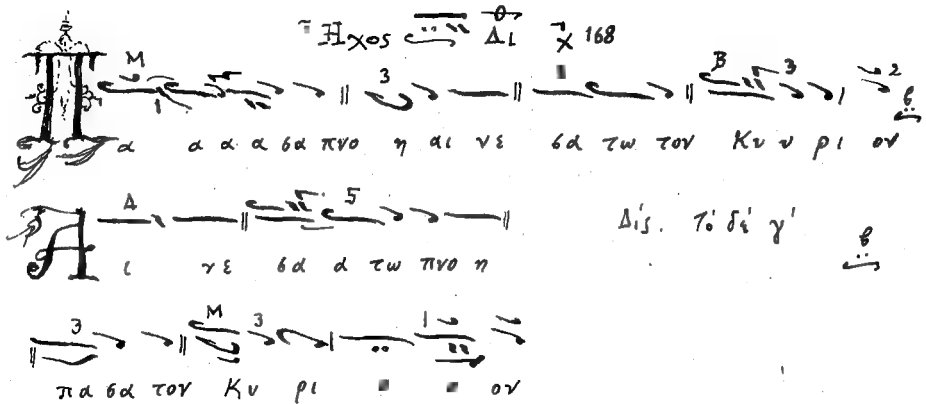 Ἦχος Δι χ 168
Πα α α α σα πνο η αι νε σα τω τον Κυ υ ρι ον
Αι νε σα α τω πνο η Δίς. Τό δέ γ'
πα σα τον Κυ ρι ον